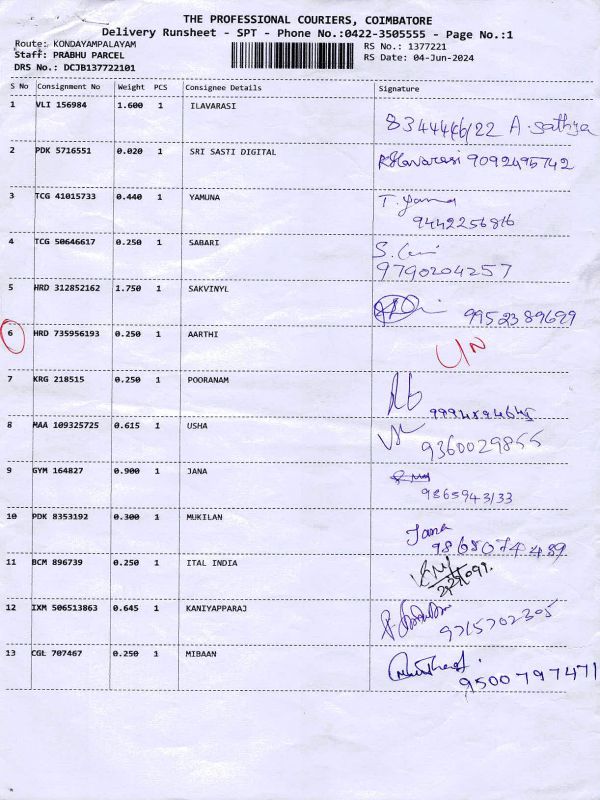 THE PROFESSIONAL COURIERS, COIMBATORE
Delivery Runsheet - SPT - Phone No.:0422-3505555 - Page No.:1
Route: KONDAYAMPALAYAM
RS No.: 1377221
Staff: PRABHU PARCEL
RS Date: 04-Jun-2024
DRS No.: DCJB137722101
S No Consignment No Weight PCS Consignee Details Signature
1 VLI 156984 1.600 1 ILAVARASI
8344446122 A. Sathya
2 PDK 5716551 0.020 1 SRI SASTI DIGITAL
9092495742
3 TCG 41015733 0.440 1 YAMUNA
T.
9442256816
4 TCG 50646617 0.250 1 SABARI
S.
9790204257
5 HRD 312852162 1.750 1 SAKVINYL
9952389699
6 HRD 735956193 0.250 1 AARTHI
UN
7 KRG 218515 0.250 1 POORANAM
8 MAA 109325725 0.615 1 USHA
9360029855
9 GYM 164827 0.900 1 JANA
9865943133
10 PDK 8353192 0.300 1 MUKILAN
Jana
11 BCM 896739 0.250 1 ITAL INDIA
12 IXM 506513863 0.645 1 KANIYAPPARAJ
9715702305
13 CGL 707467 0.250 1 MIBAAN
9500797471